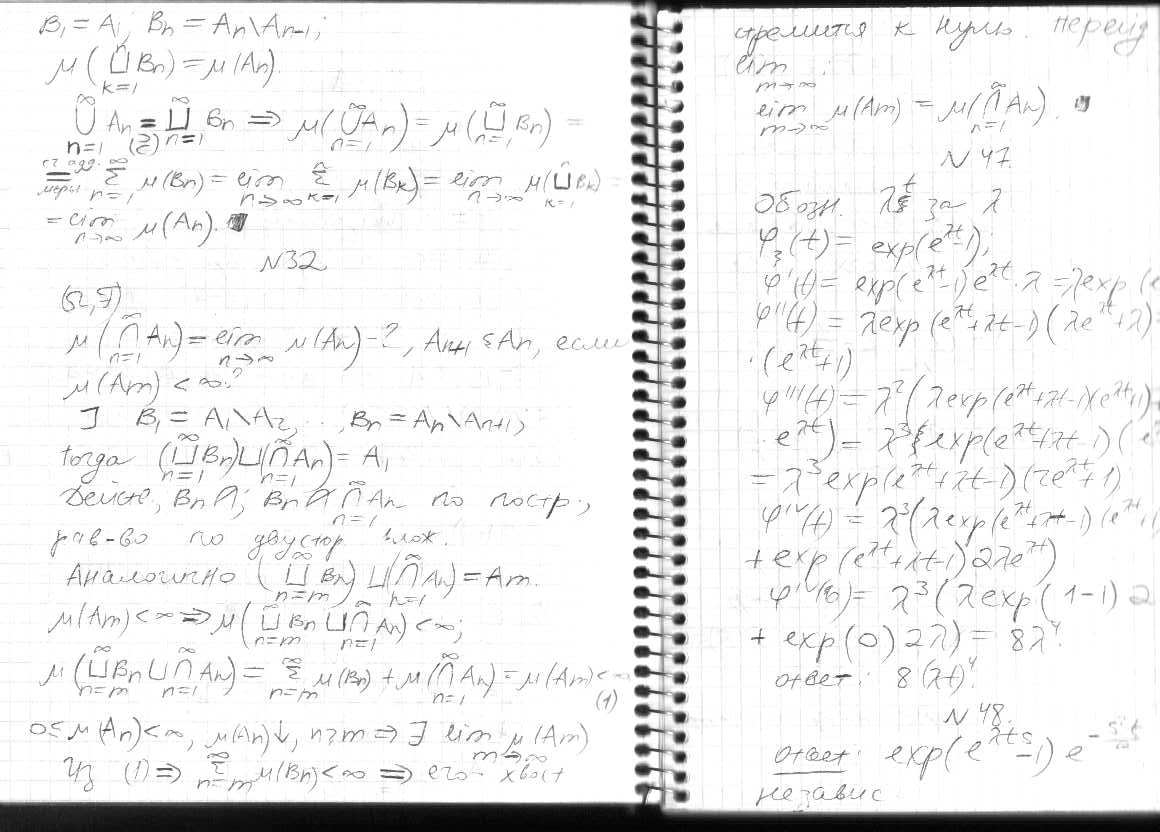 B₁ = A₁, Bₙ = Aₙ\Aₙ₋₁;
μ(⊔ₖ₌₁ⁿ Bₙ) = μ(Aₙ).
⋃ₙ₌₁^∞ Aₙ = ⊔ₙ₌₁^∞ Bₙ ⇒ μ(⋃ₙ₌₁^∞ Aₙ) = μ(⊔ₙ₌₁^∞ Bₙ) =
= сч. адд. меры Σₙ₌₁^∞ μ(Bₙ) = lim n→∞ Σₖ₌₁ⁿ μ(Bₖ) = lim n→∞ μ(⊔ₖ₌₁ⁿ Bₖ) =
= lim n→∞ μ(Aₙ).
N32
(Ω, F)
μ(⋂ₙ₌₁^∞ Aₙ) = lim n→∞ μ(Aₙ) - ?, Aₙ₊₁ ⊆ Aₙ, если
μ(Aₘ) < ∞?
∃ B₁ = A₁\A₂, ..., Bₙ = Aₙ\Aₙ₊₁;
тогда (⊔ₙ₌₁^∞ Bₙ)⊔(⋂ₙ₌₁^∞ Aₙ) = A₁
Действ., Bₙ ; Bₙ ⋂ₙ₌₁^∞ Aₙ по постр.,
рав-во по двустор. влож.
Аналогично (⊔ₙ₌ₘ^∞ Bₙ) ⊔ (⋂ₙ₌₁^∞ Aₙ) = Aₘ.
μ(Aₘ) < ∞ ⇒ μ(⊔ₙ₌ₘ^∞ Bₙ ⊔ ⋂ₙ₌₁^∞ Aₙ) < ∞;
μ(⊔ₙ₌ₘ^∞ Bₙ ⊔ ⋂ₙ₌₁^∞ Aₙ) = Σₙ₌ₘ^∞ μ(Bₙ) + μ(⋂ₙ₌₁^∞ Aₙ) = μ(Aₘ) < ∞
(1)
0 ≤ μ(Aₙ) < ∞, μ(Aₙ)↓, n ≥ m ⇒ ∃ lim m→∞ μ(Aₘ)
Из (1) ⇒ Σₙ₌ₘ^∞ μ(Bₙ) < ∞ ⇒ его хвост
стремится к нулю. Перейд
lim m→∞ :
lim m→∞ μ(Aₘ) = μ(⋂ₙ₌₁^∞ Aₙ).
N 47.
Обозн. λt за λ
φ_ξ(t) = exp(e^{λt}-1);
φ'(t) = exp(e^{λt}-1)e^{λt}·λ = λexp(e
φ''(t) = λexp(e^{λt}+λt-1)(λe^{λt}+λ) =
·(e^{λt}+1)
φ'''(t) = λ²(λexp(e^{λt}+λt-1)(e^{λt}+1)
e^{λt}) = λ³exp(e^{λt}+λt-1)(e^λ
= λ³exp(e^{λt}+λt-1)(2e^{λt}+1)
φ^{IV}(t) = λ³(λexp(e^{λt}+λt-1)(e^{λt}+1
+ exp(e^{λt}+λt-1)2λe^{λt})
φ^{IV}(0) = λ³(λexp(1-1)2
+ exp(0)2λ) = 8λ⁴.
ответ: 8(λt)⁴.
N 48.
ответ: exp(e^{λts}-1)e^-
независ.